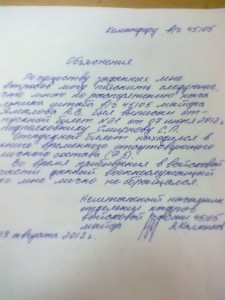 Командиру в/ч 45105
Объяснения
По существу заданных мне
вопросов могу пояснить следующее,
что мною по распоряжению начальника
штаба в/ч 45105 майора
был выписан отпускной
билет №21 от 07 июня 2012г.
подполковнику Смирнову С.П.
Отпускной билет находился в
книге временного отсутствующего
личного состава
Во время прибывания в войсковой
части данный военнослужащий
ко мне лично не обращался.
Нештатный начальник
отделения кадров
войсковой части 45105
майор
августа 2012г.